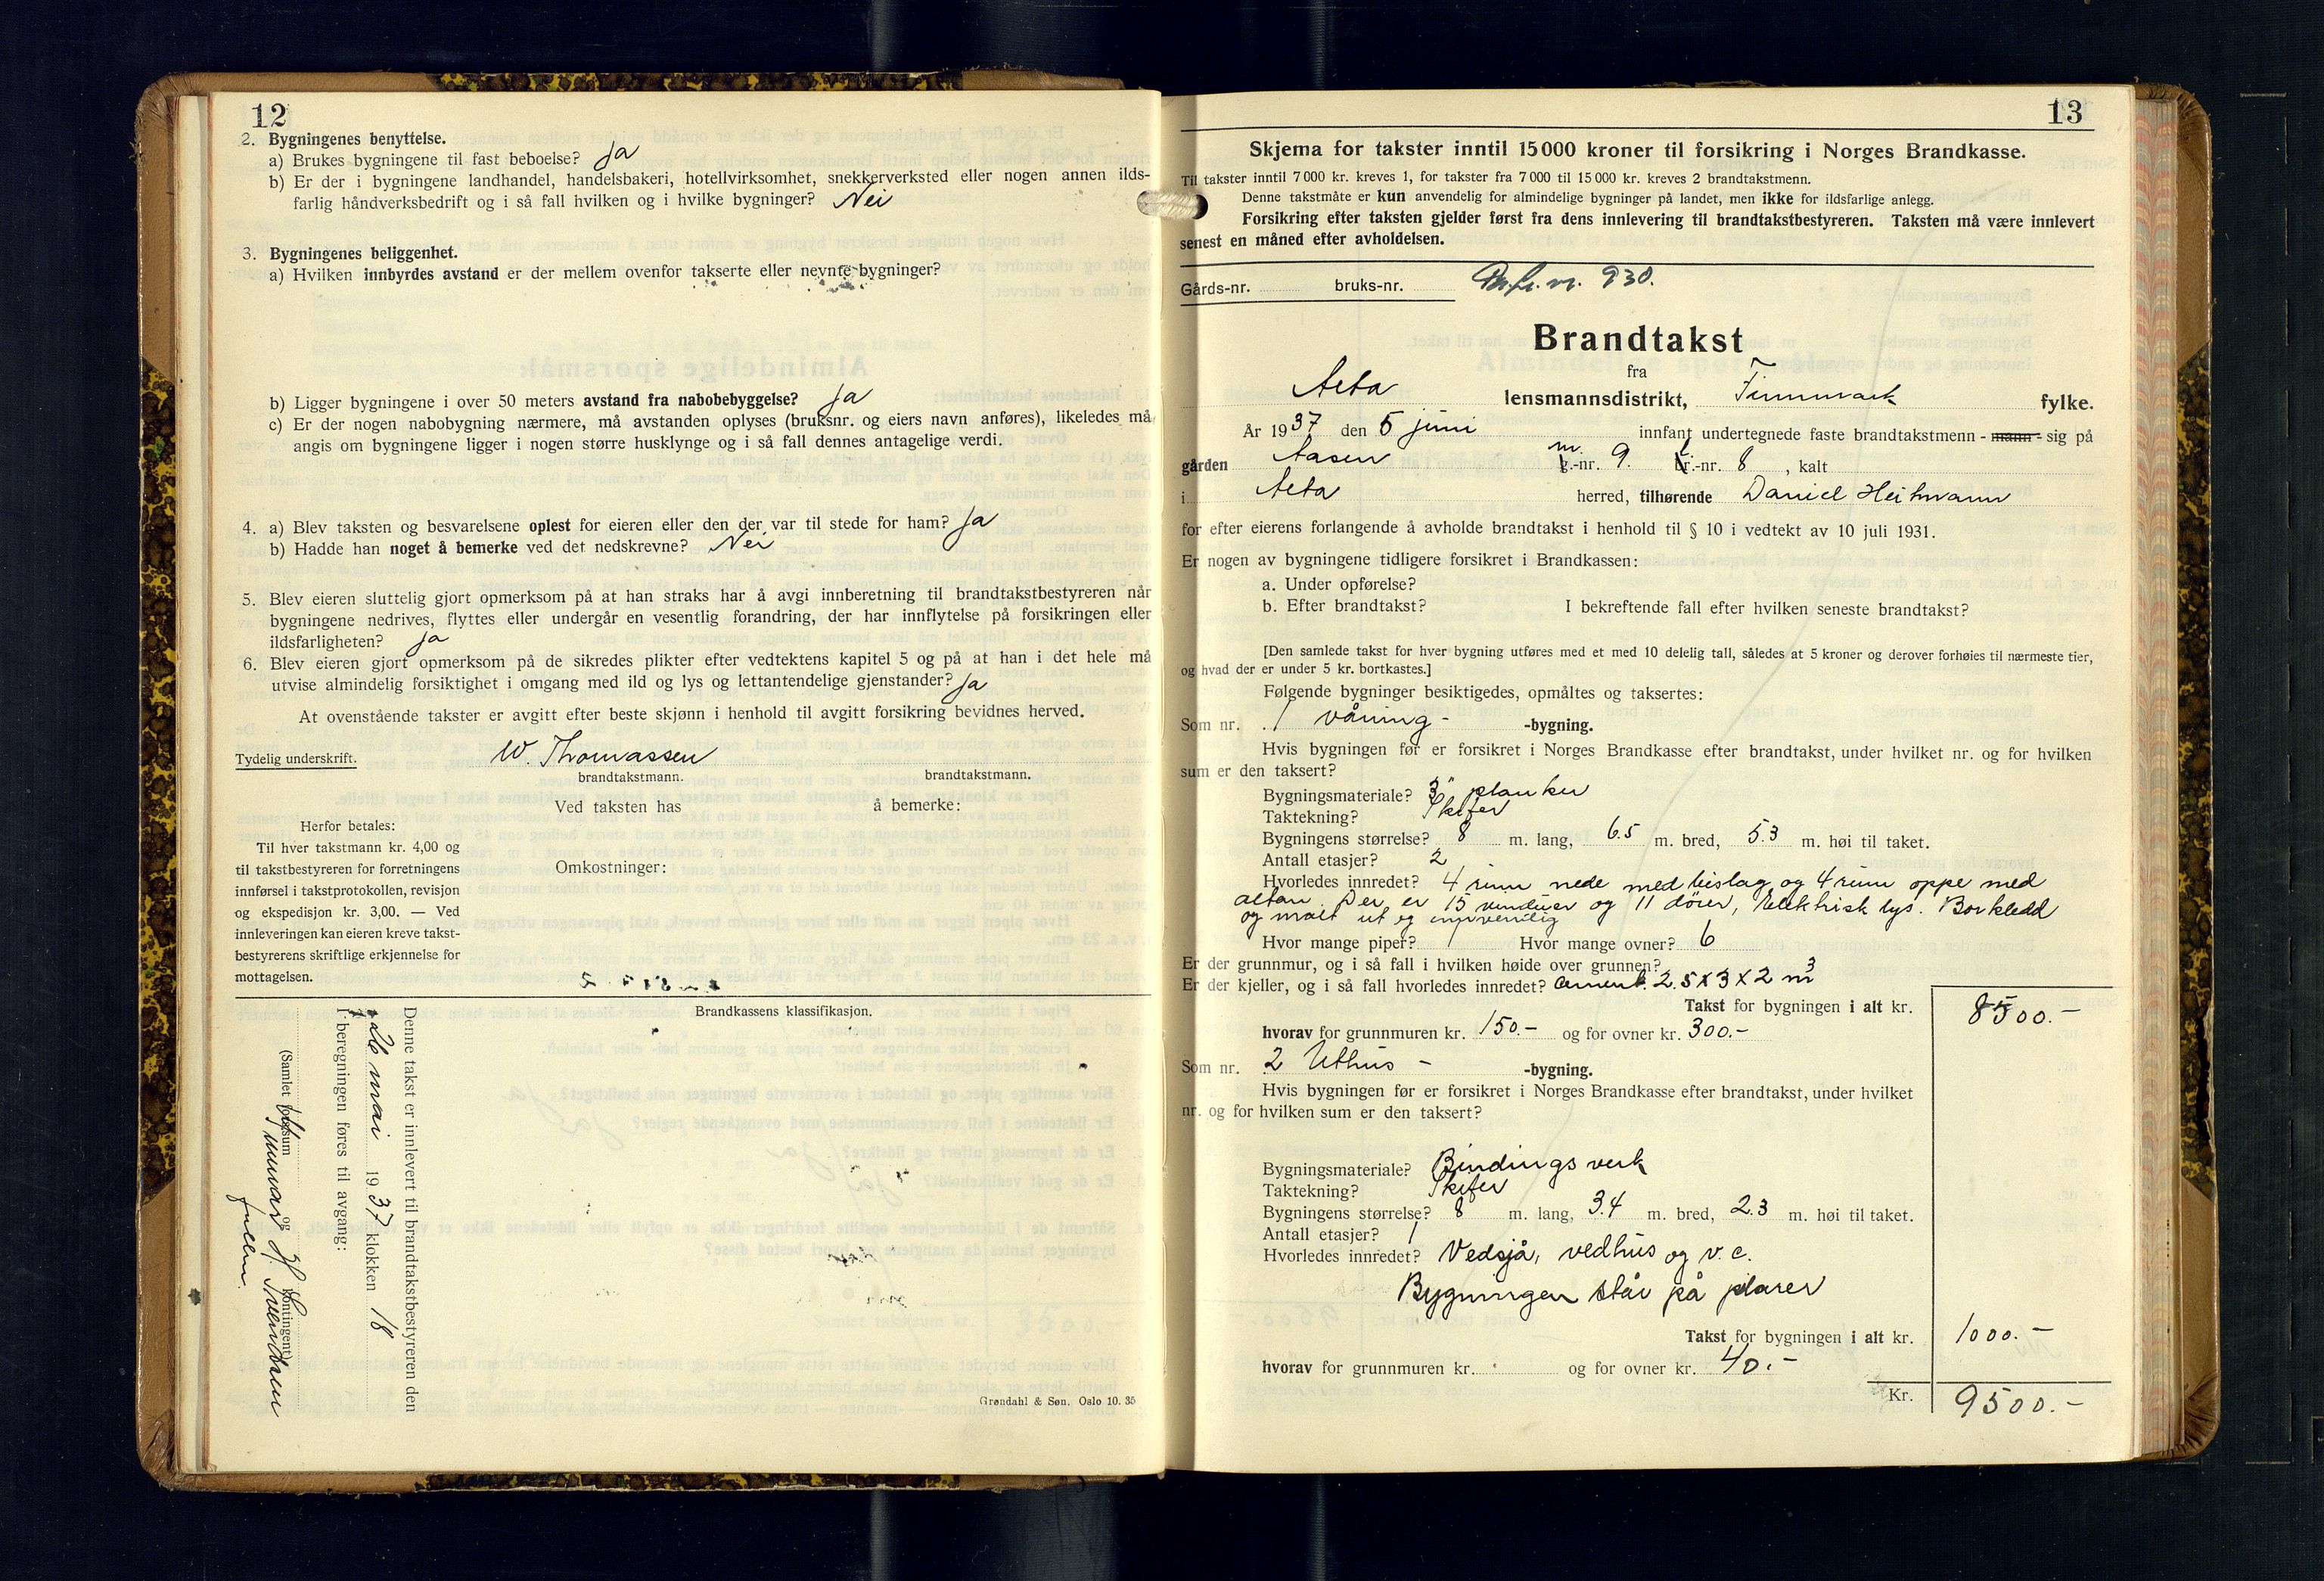 12
2. Bygningenes benyttelse.
a) Brukes bygningene til fast beboelse? Ja
b) Er der i bygningene landhandel, handelsbakeri, hotellvirksomhet, snekkerverksted eller nogen annen ilds-
farlig håndverksbedrift og i så fall hvilken og i hvilke bygninger? Nei
3. Bygningenes beliggenhet.
a) Hvilken innbyrdes avstand er der mellem ovenfor takserte eller nevnte bygninger?
b) Ligger bygningene i over 50 meters avstand fra nabobebyggelse? Ja
c) Er der nogen nabobygning nærmere, må avstanden oplyses (bruksnr. og eiers navn anføres), likeledes må
angis om bygningene ligger i nogen større husklynge og i så fall dennes antagelige verdi.
4. a) Blev taksten og besvarelsene oplest for eieren eller den der var til stede for ham? Ja
b) Hadde han noget å bemerke ved det nedskrevne? Nei
5. Blev eieren sluttelig gjort opmerksom på at han straks har å avgi innberetning til brandtakstbestyreren når
bygningene nedrives, flyttes eller undergår en vesentlig forandring, der har innflytelse på forsikringen eller
ildsfarligheten? Ja
6. Blev eieren gjort opmerksom på de sikredes plikter efter vedtektens kapitel 5 og på at han i det hele må
utvise almindelig forsiktighet i omgang med ild og lys og lettantendelige gjenstander? Ja
At ovenstående takster er avgitt efter beste skjønn i henhold til avgitt forsikring bevidnes herved.
Tydelig underskrift. W. Thomassen
brandtakstmann. brandtakstmann.
Ved taksten has å bemerke:
Herfor betales:
Til hver takstmann kr. 4,00 og
til takstbestyreren for forretningens
innførsel i takstprotokollen, revisjon
og ekspedisjon kr. 3,00. — Ved
innleveringen kan eieren kreve takst-
bestyrerens skriftlige erkjennelse for
mottagelsen.
Omkostninger:
Brandkassens klassifikasjon.
Denne takst er innlevert til brandtakstbestyreren den
26 mai 1937 klokken 18
I beregningen føres til avgang:
(Samlet sum og kontingent)
H. Svendsen
Grøndahl & Søn. Oslo 10. 35
13
Skjema for takster inntil 15000 kroner til forsikring i Norges Brandkasse.
Til takster inntil 7 000 kr. kreves 1, for takster fra 7 000 til 15 000 kr. kreves 2 brandtakstmenn.
Denne takstmåte er kun anvendelig for almindelige bygninger på landet, men ikke for ildsfarlige anlegg.
Forsikring efter taksten gjelder først fra dens innlevering til brandtakstbestyreren. Taksten må være innlevert
senest en måned efter avholdelsen.
Gårds-nr. bruks-nr. 930.
Brandtakst
fra
Alta lensmannsdistrikt, Finnmark fylke.
År 1937 den 5 juni innfant undertegnede faste brandtakstmenn - mann - sig på
gården Aasen m.-nr. 9. l.-nr. 8, kalt
i Alta herred, tilhørende Daniel Heitmann
for efter eierens forlangende å avholde brandtakst i henhold til § 10 i vedtekt av 10 juli 1931.
Er nogen av bygningene tidligere forsikret i Brandkassen:
a. Under opførelse?
b. Efter brandtakst? I bekreftende fall efter hvilken seneste brandtakst?
[Den samlede takst for hver bygning utføres med et med 10 delelig tall, således at 5 kroner og derover forhøies til nærmeste tier,
og hvad der er under 5 kr. bortkastes.]
Følgende bygninger besiktigedes, opmåltes og taksertes:
Som nr. 1 våning- -bygning.
Hvis bygningen før er forsikret i Norges Brandkasse efter brandtakst, under hvilket nr. og for hvilken
sum er den taksert?
Bygningsmateriale? 3" planker
Taktekning? Skifer
Bygningens størrelse? 8 m. lang, 6.5 m. bred, 5.3 m. høi til taket.
Antall etasjer? 2
Hvorledes innredet? 4 rum nede med bislag og 4 rum oppe med
altan. Der er 15 vinduer og 11 dører, elektrisk lys. Bordkledd
og malt ut og innvendig
Hvor mange piper? 1 Hvor mange ovner? 6
Er der grunnmur, og i så fall i hvilken høide over grunnen?
Er der kjeller, og i så fall hvorledes innredet? Cement. 2.5 x 3 x 2 m3
Takst for bygningen i alt kr. 8500.-
hvorav for grunnmuren kr. 150.- og for ovner kr. 300.-
Som nr. 2 Uthus - -bygning.
Hvis bygningen før er forsikret i Norges Brandkasse efter brandtakst, under hvilket
nr. og for hvilken sum er den taksert?
Bygningsmateriale? Bindingsverk
Taktekning? Skifer
Bygningens størrelse? 8 m. lang, 3.4 m. bred, 2.3 m. høi til taket.
Antall etasjer? 1
Hvorledes innredet? Vedsjå, vedhus og v.c.
Bygningen står på pilarer
Takst for bygningen i alt kr. 1000.-
hvorav for grunnmuren kr. og for ovner kr. 40.-
Kr. 9500.-